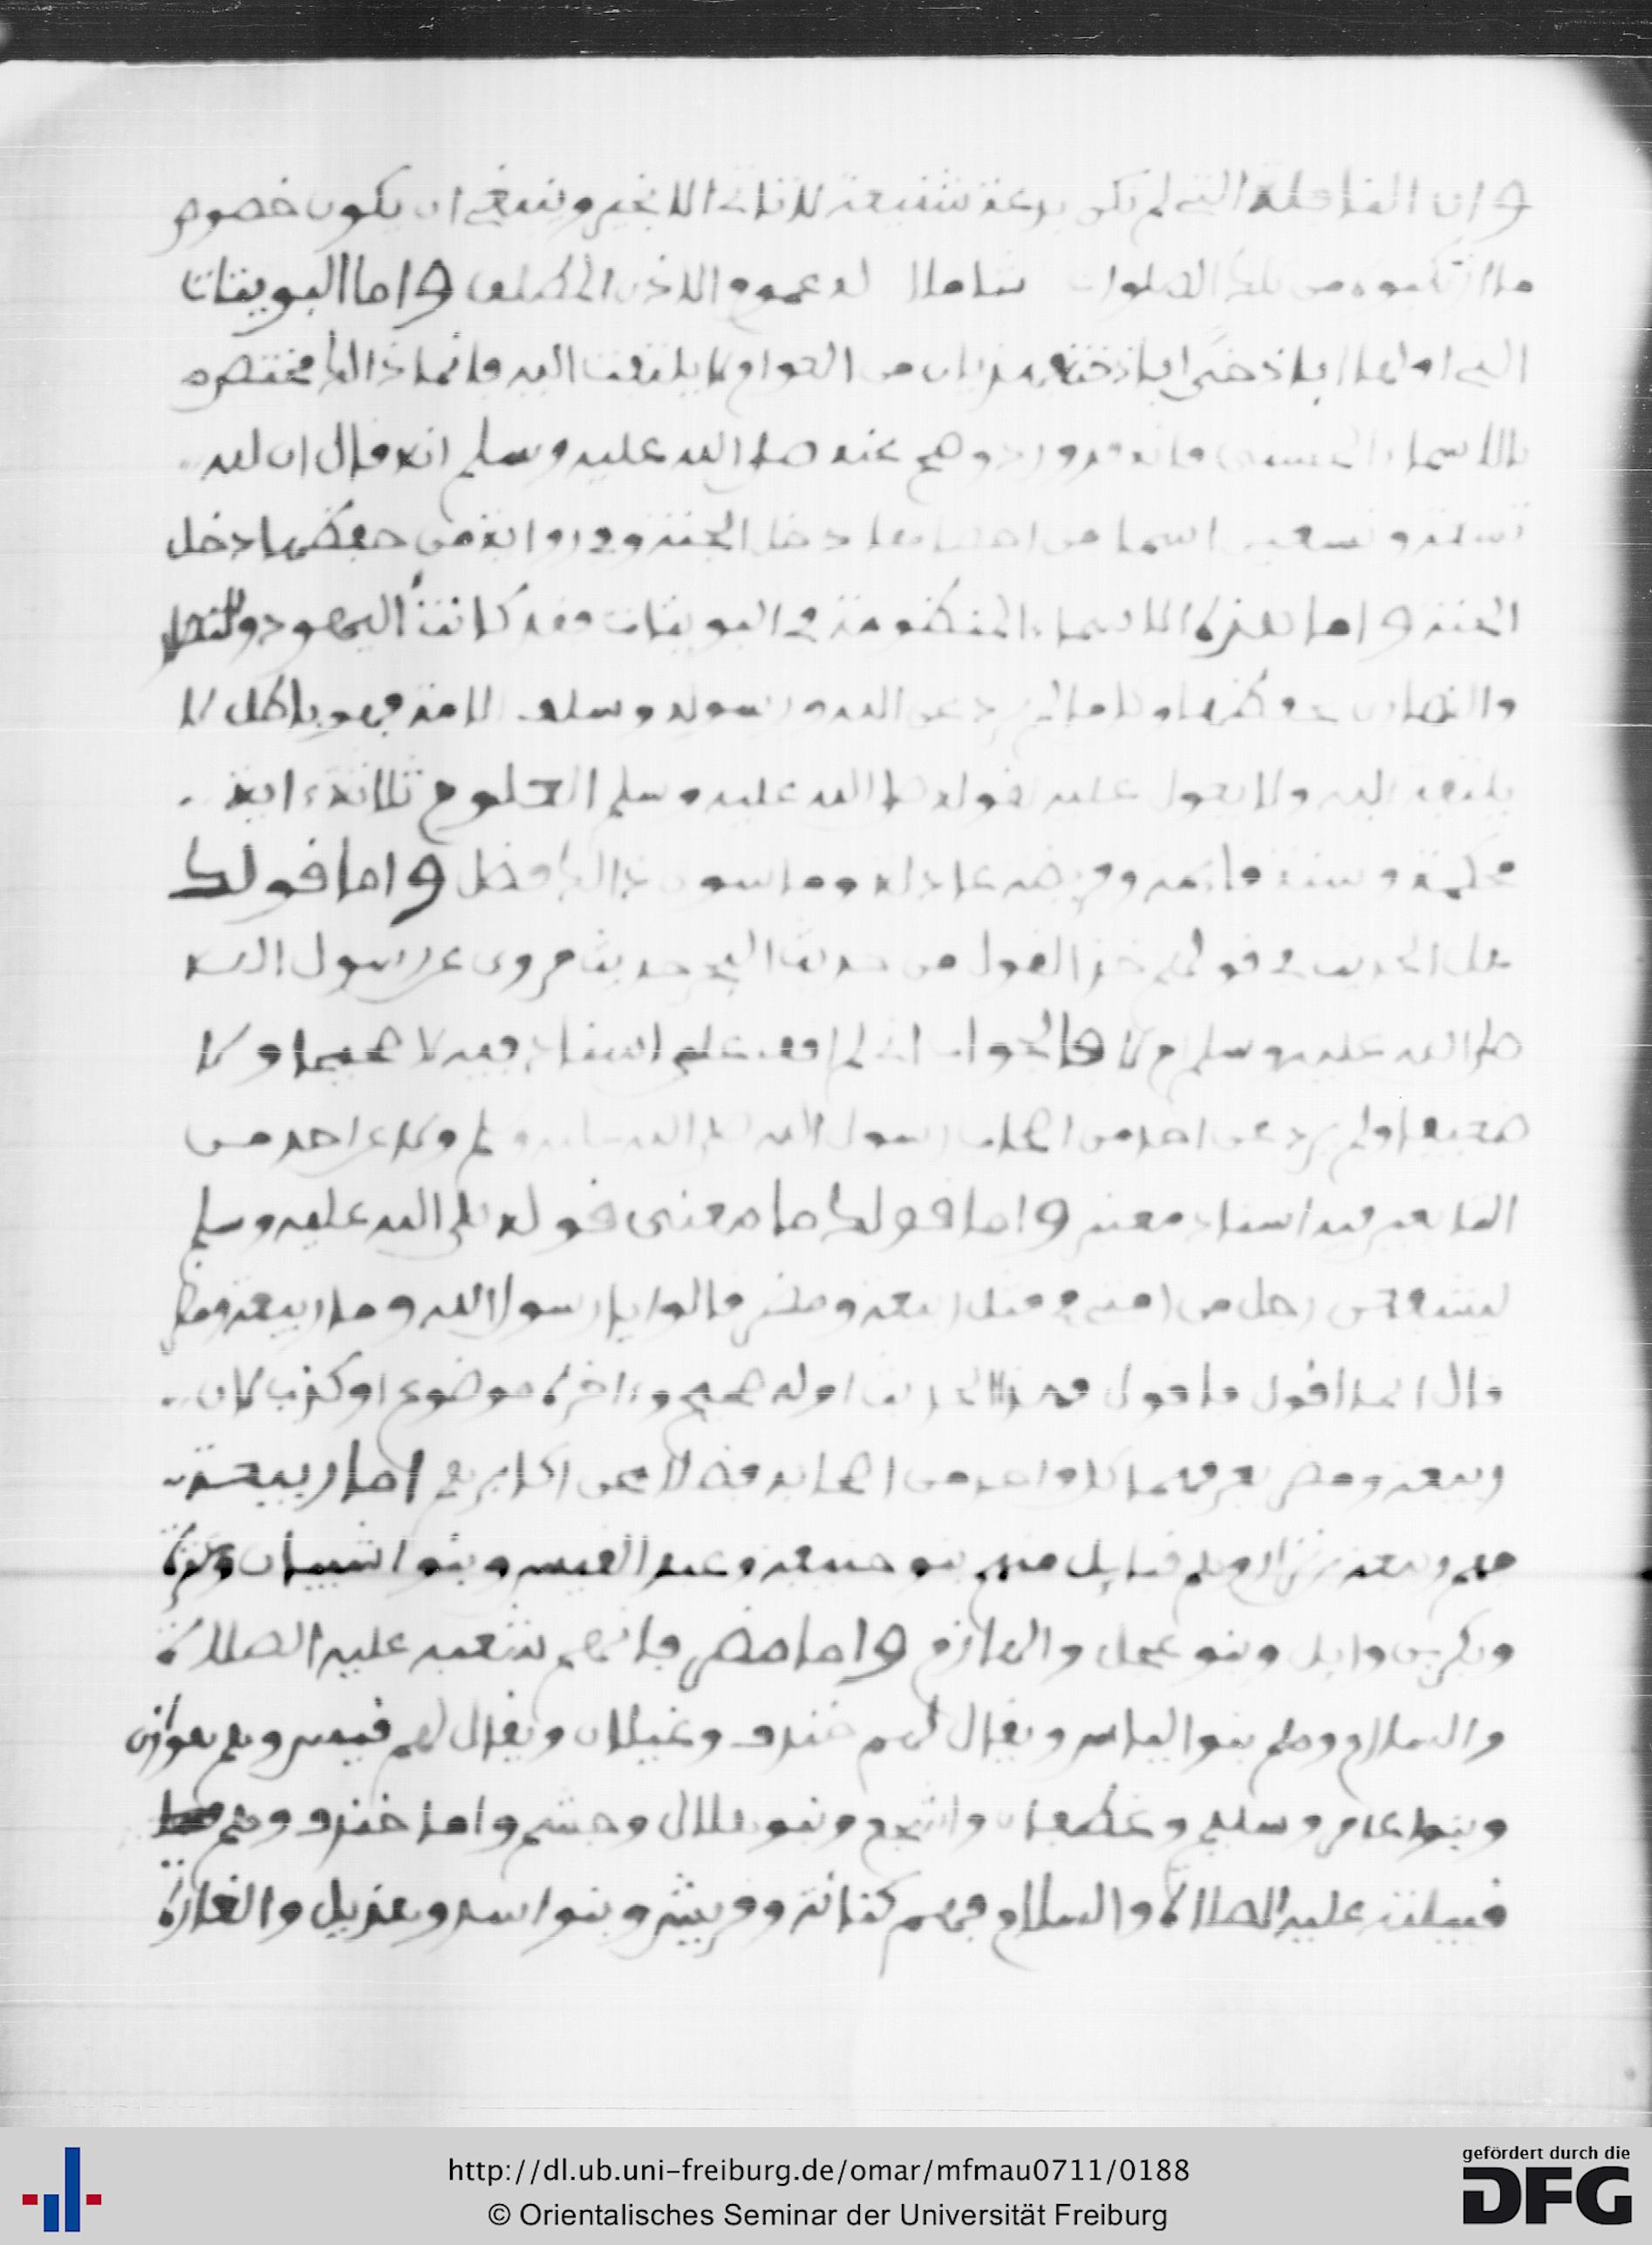 وان النافلة التي لم تكن بدعة شنيعة لا تاتي الا بخير وينبغي ان يكون خصوص
ما ارتكبوه من تلك الصلوات شاملا له عموم الاذن المطلق واما البويتات
التي اولها من العوام لا يلتفت اليه وانما ذالك مختصره
بالاسماء الحسنى فانه قد ورد وصح عنه صلى الله عليه وسلم انه قال ان لله
تسعة وتسعين اسما من احصاها دخل الجنة وفي رواية من حفظها دخل
الجنة واما هذه الاسماء المنظومة في البويتات فقد كانت اليهود
والنصارى تحفظها وكل ما لم يرد عن الله ورسوله وسلف الامة فهو باطل لا
يلتفت اليه ولا يعول عليه لقوله صلى الله عليه وسلم العلوم ثلاثة ءاية
محكمة وسنة قائمة وفريضة عادلة وما سوى ذالك فضل واما قولك
هل الحديث في قولهم خذ الفول من حديث مروى عن رسول الله
صلى الله عليه وسلم ام لا فالجواب اني لم اقف على اسناد فيه لا صحيحا ولا
ضعيفا ولم يرد عن احد من اصحاب رسول الله صلى الله عليه وسلم ولا عن احد من
التابعين فيه اسناد معتبر واما قولك ما معنى قوله صلى الله عليه وسلم
ليشفعن رجل من امتي في مثل ربيعة ومضر قالوا يا رسول الله وما ربيعة ومضر
قال انما اقول ما اقول فهذا الحديث اوله صحيح وءاخره موضوع او كذب لان
ربيعة ومضر يعرفهما كل واحد من اصحابه فضلا عن اكابرهم اما ربيعة
فهم ربيعة بن نزار وهم قبايل منهم بنو حنيفة وعبد القيس وبنوا شيبان وعنزة
وبكر بن وايل وبنو عجل واللهازم واما مضر فانهم شعبه عليه الصلاة
والسلام وهم بنو الياس ويقال لهم خندف وغيلان ويقال لهم قيس وهم هوازن
وبنوا عامر وسليم وغطفان واشجع وبنو هلال وجشم واما خندف وهم
قبيلته عليه الصلاة والسلام فمنهم كنانة وقريش وبنوا اسد وهذيل والقارة
http://dl.ub.uni-freiburg.de/omar/mfmau0711/0188
© Orientalisches Seminar der Universität Freiburg
gefördert durch die
DFG